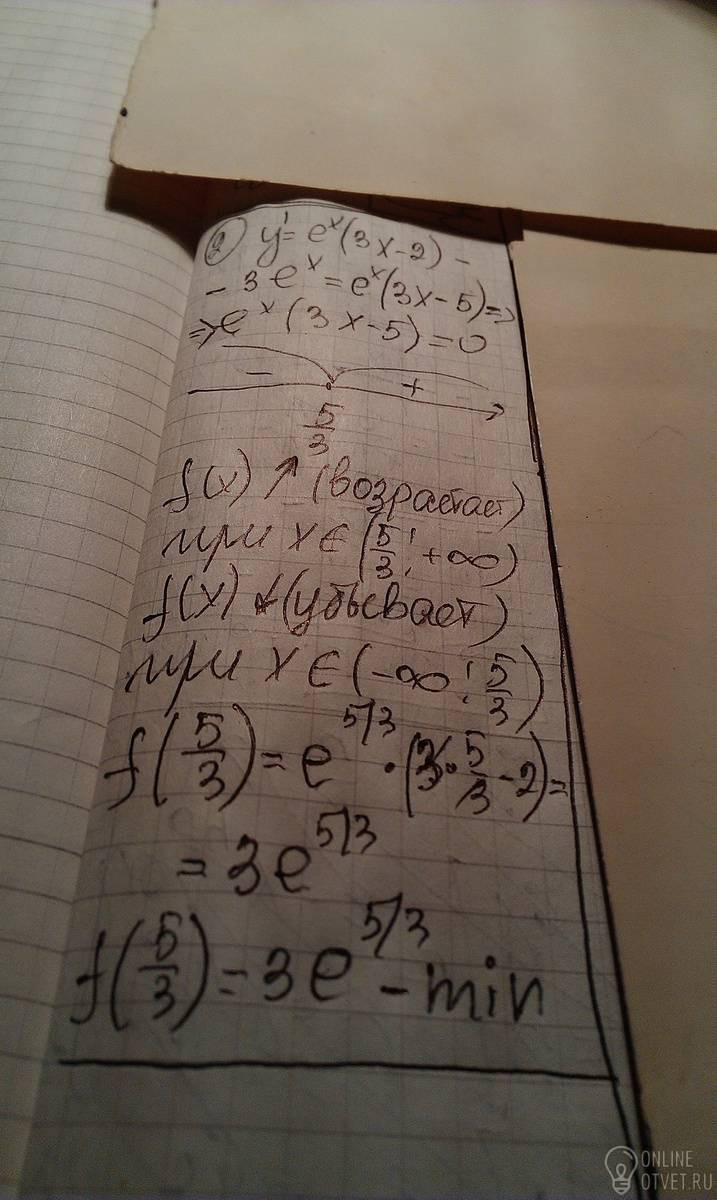 ② y' = eˣ(3x-2) -
- 3eˣ = eˣ(3x-5) =>
=> eˣ(3x-5) = 0
- +
5/3
f(x) ↑ (возрастает)
при x ∈ (5/3; +∞)
f(x) ↓ (убывает)
при x ∈ (-∞; 5/3)
f(5/3) = e^5/3 · (3·5/3-2) =
= 3e^5/3
f(5/3) = 3e^5/3 - min
ONLINE
OTVET.RU